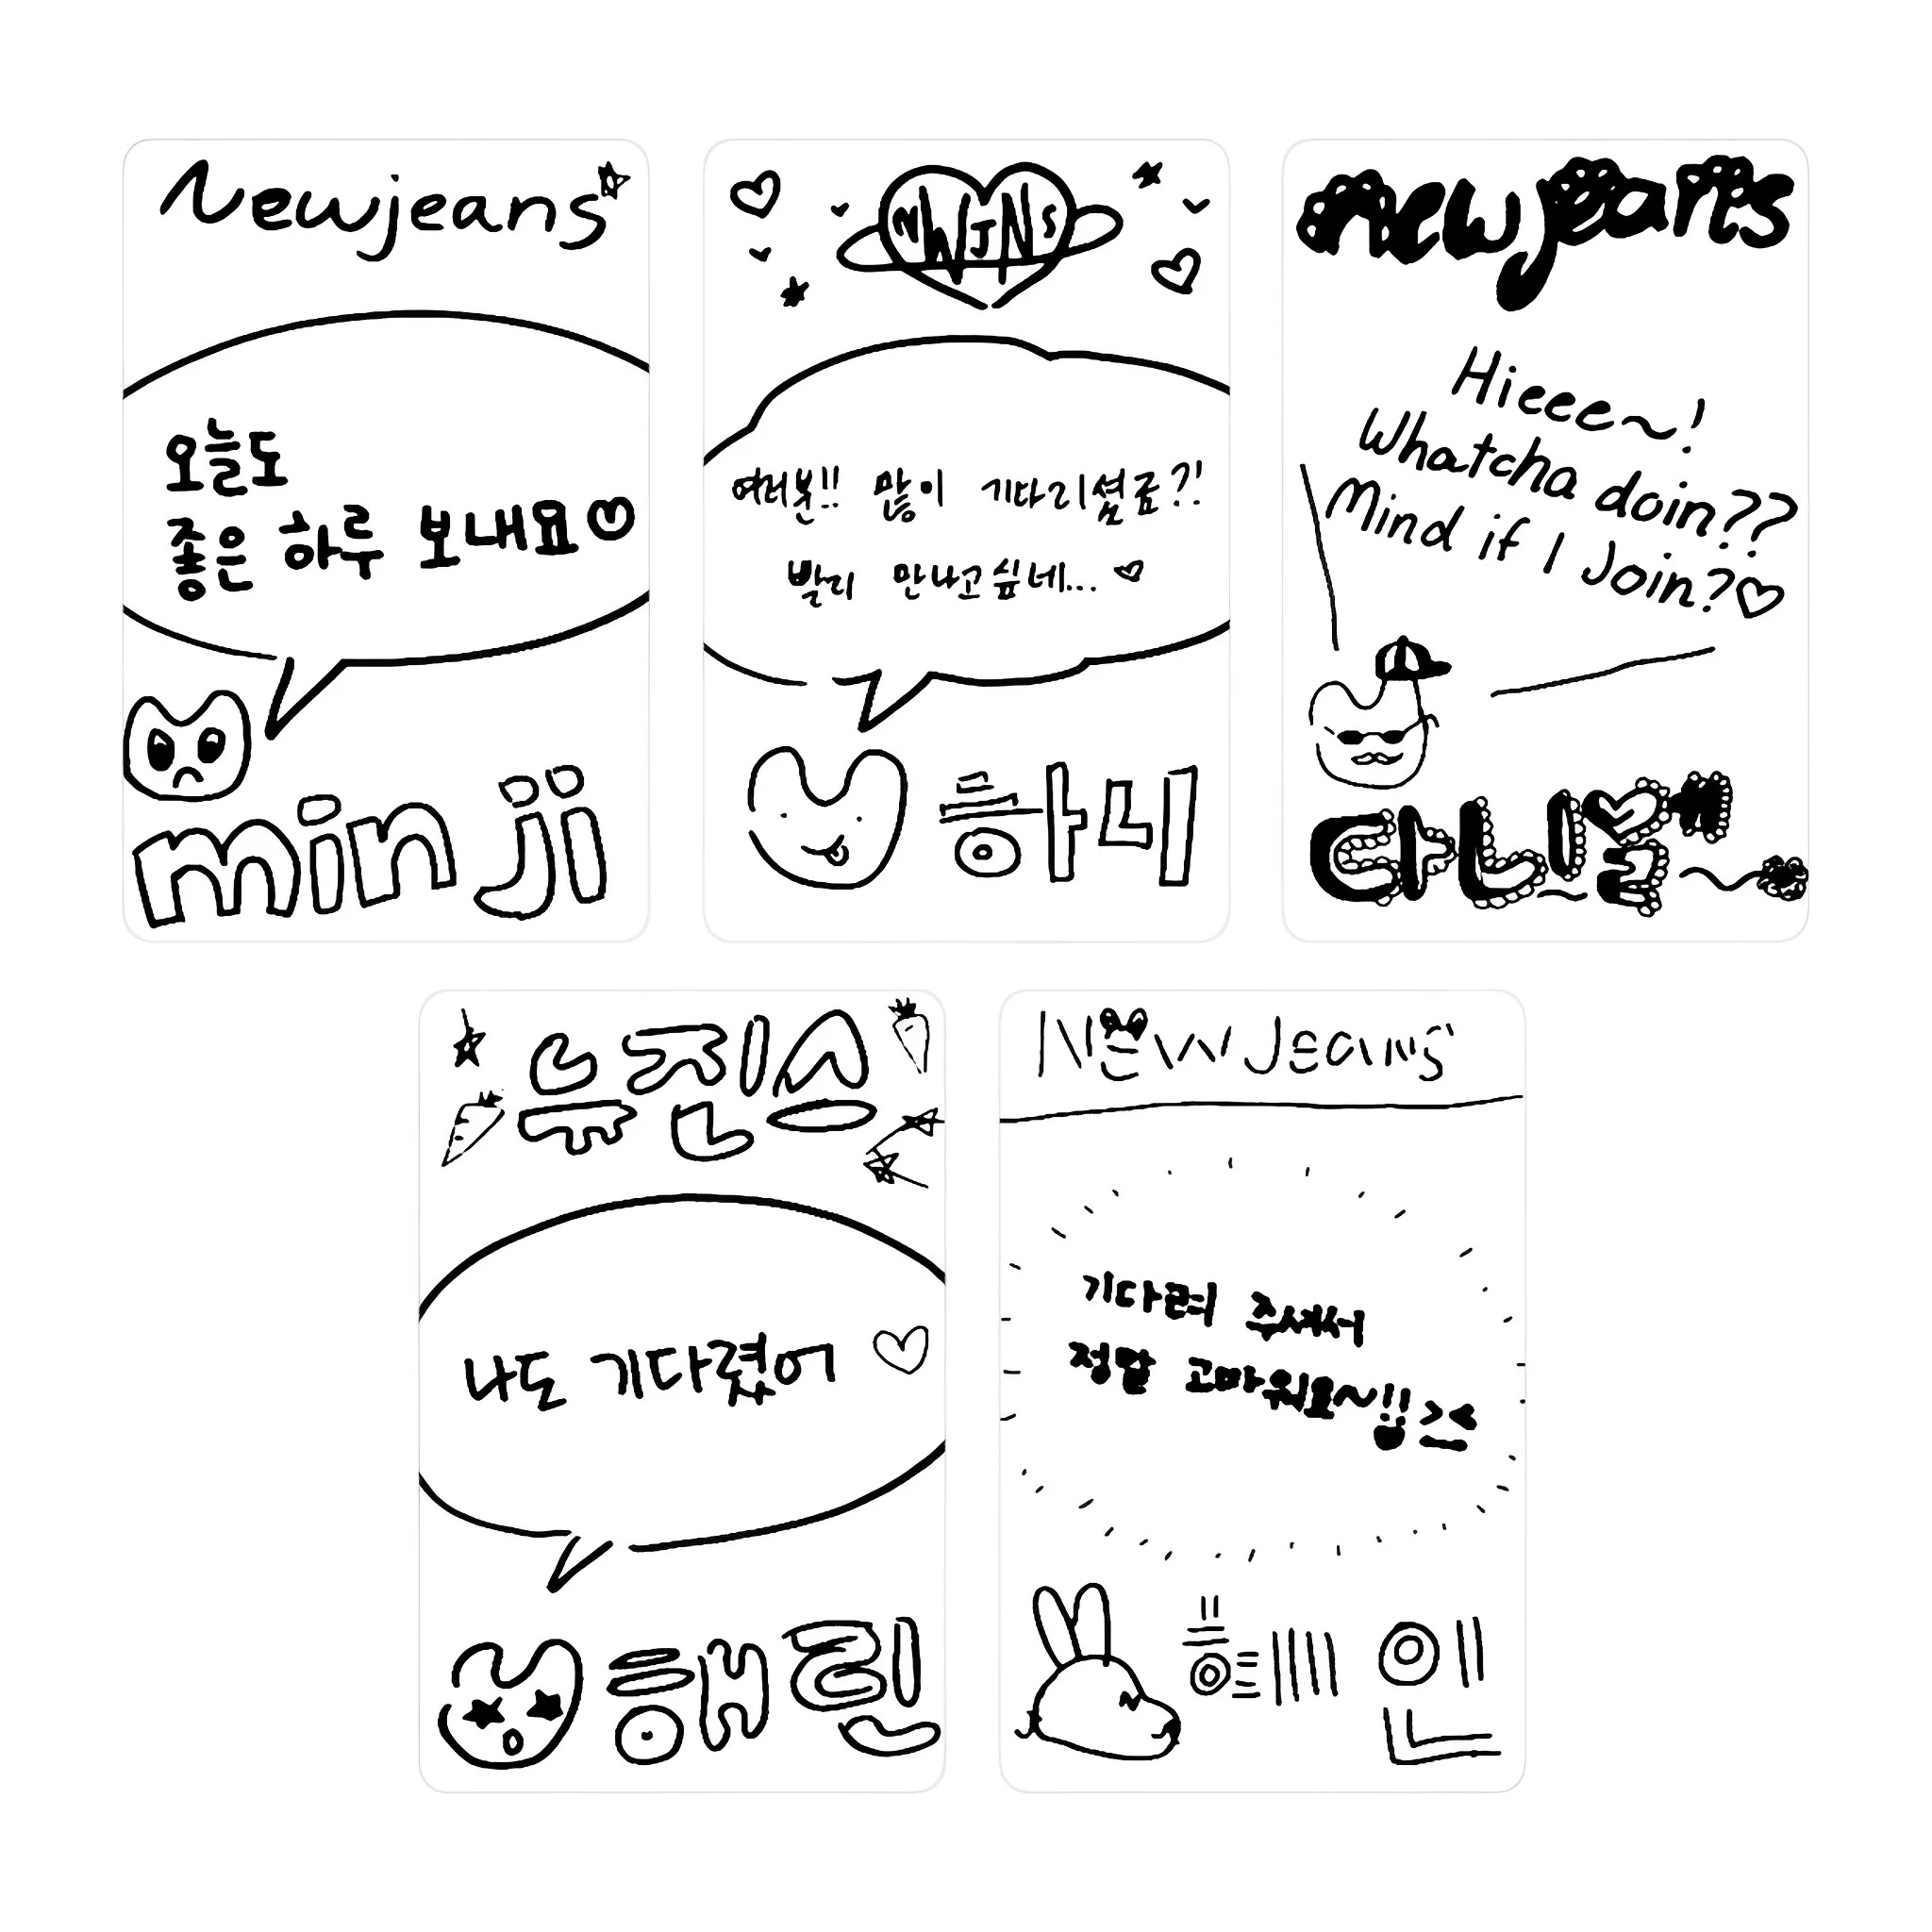 Newjeans
오늘도
좋은 하루 보내요♡
minji
NWJNS
여러분!! 많이 기다리셨죠?!
빨리 만나고싶네...♡
하니
newjeans
Hieee~!
Whatcha doin??
Mind if I Join?♡
다니엘
뉴진스
나도 기다렸어 ♡
해린
NEW JEans
기다려 주셔서
정말 고마워요~!!
혜인